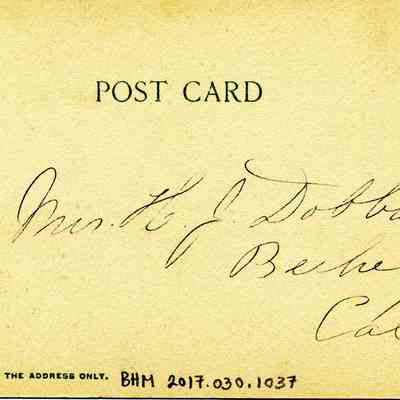 POST CARD
Mrs. H. J. Dobb
THE ADDRESS ONLY. BHM 2017.030.1037